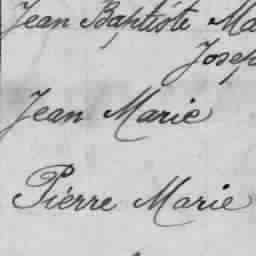 Jean Baptiste Ma
Josep
Jean Marie
Pierre Marie